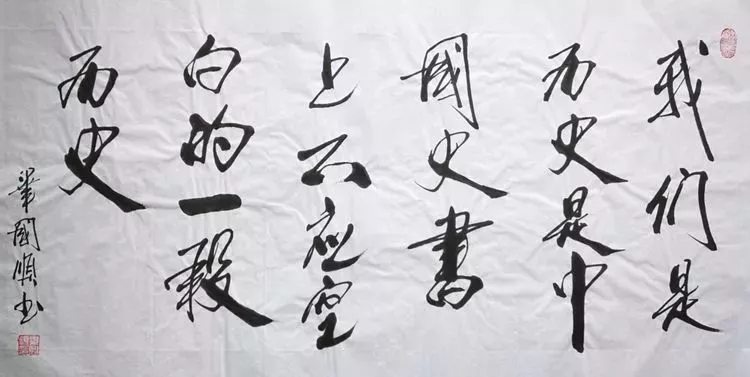 我们是
历史是中
國史書
上不应空
白的一段
历史
國順书